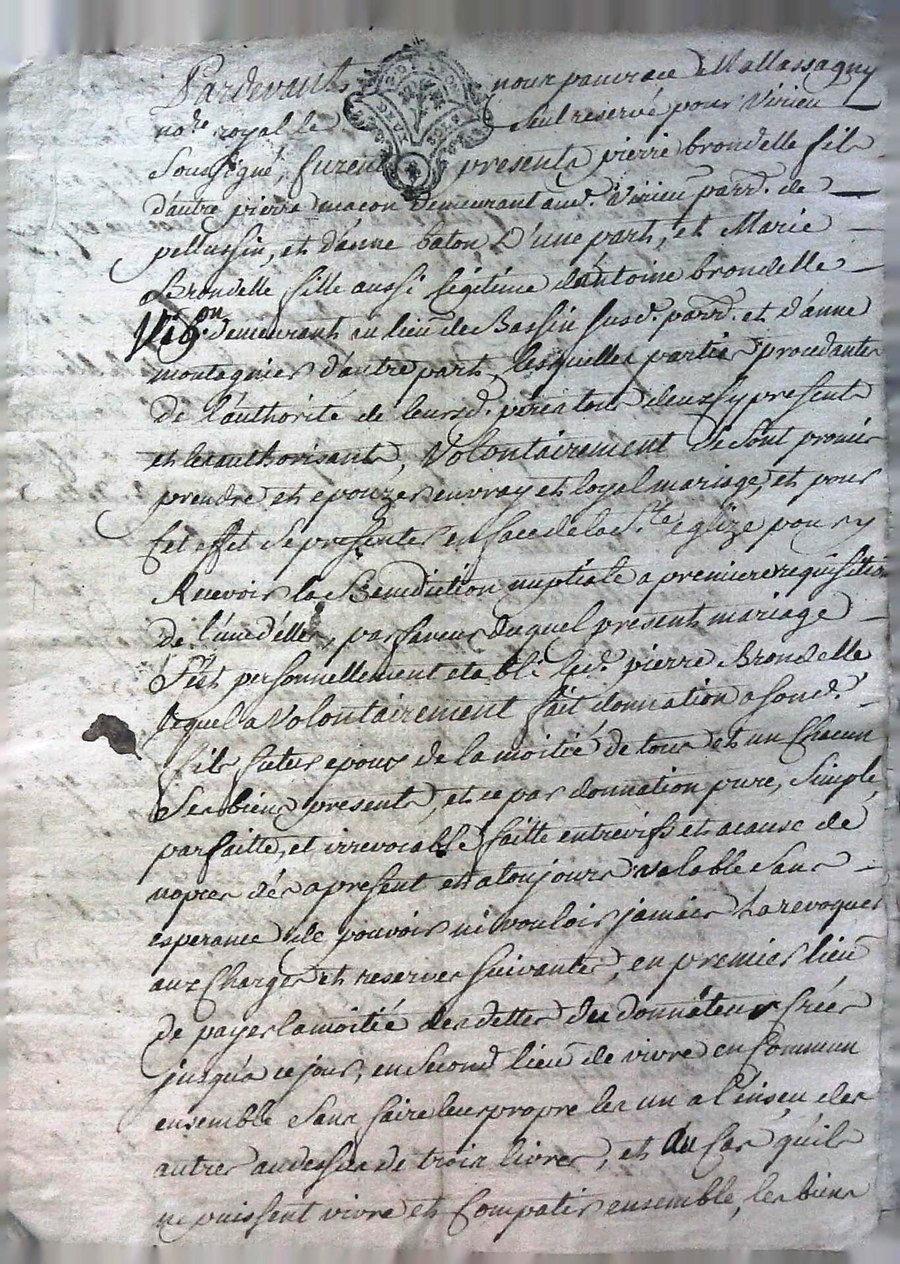 Pardevant nous pancrace Mallassagny
no.re royal le seul reservé pour Virieu
Soussigné, furent presents pierre brondelle fils
d'autre pierre macon demeurant aud. Virieu parr. de
pellussin, et d'anne baton D'une part, et Marie
Brondelle fille aussi legitime d'antoine brondelle
demeurant au lieu de Bassin susd. parr. et d'anne
montagnier d'autre part, lesquelles parties procedantes
De l'authorité de leursd. peres tous deux cy presents
et les authorisants, Volontairement se sont promis
prendre et epouzer en vray et loyal mariage, et pour
Cet effet se presenter en face de la s.te eglize pour y
Recevoir la Benediction nuptiale a premiere requisition
De l'une d'elles, par faveur duquel present mariage
S'est personnellement etabli led. pierre Brondelle
lequel a Volontairement fait donnation a sond.
fils futur epoux de la moitié de tous et un Chacun
Ses biens presents, et ce par donnation pure, simple,
parfaitte, et irrevocable faitte entrevifs et a cause de
nopces dés a present et a toujours valable sans
esperance de pouvoir ni vouloir jamais la revoquer
aux Charges et reserves suivantes, en premier lieu
de payer la moitié des dettes du donnateur Créés
jusqu'a ce jour, en second lieu de vivre en Commun
ensemble sans faire leur propre les un a l'insçu des
autres au dessus de trois livres, et du Cas quils
ne puissent vivre et Compatir ensemble, les biens